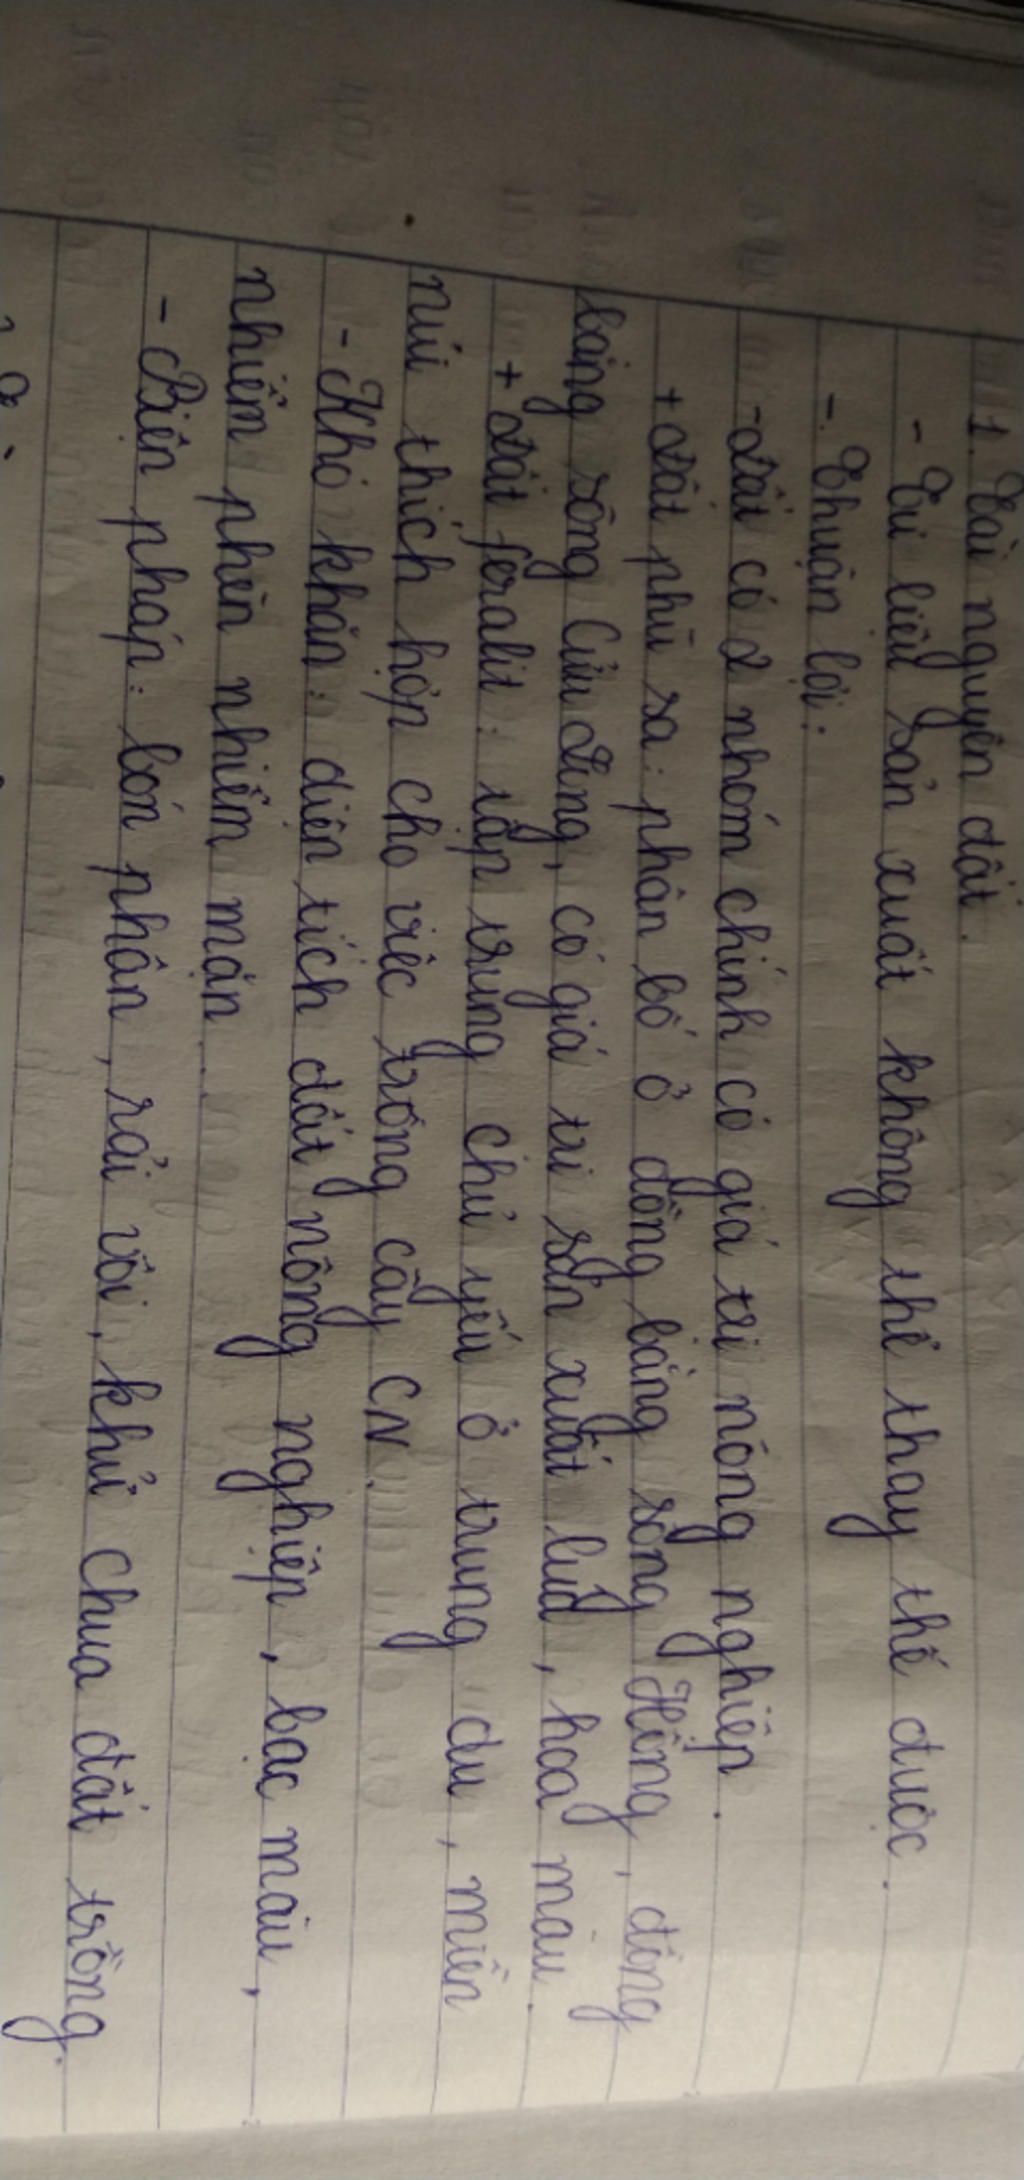 1. Tài nguyên đất.
- Tư liệu sản xuất không thể thay thế được.
- Thuận lợi:
- Đất có 2 nhóm chính có giá trị nông nghiệp.
+ Đất phù sa: phân bố ở đồng bằng sông Hồng, đồng
bằng sông Cửu Long, có giá trị sản xuất lúa, hoa màu.
+ Đất feralit: tập trung chủ yếu ở trung du, miền
núi thích hợp cho việc trồng cây CN.
- Khó khăn: diện tích đất nông nghiệp, bạc màu,
nhiễm phèn nhiễm mặn...
- Biện pháp: bón phân, rải vôi, khử chua đất trồng.